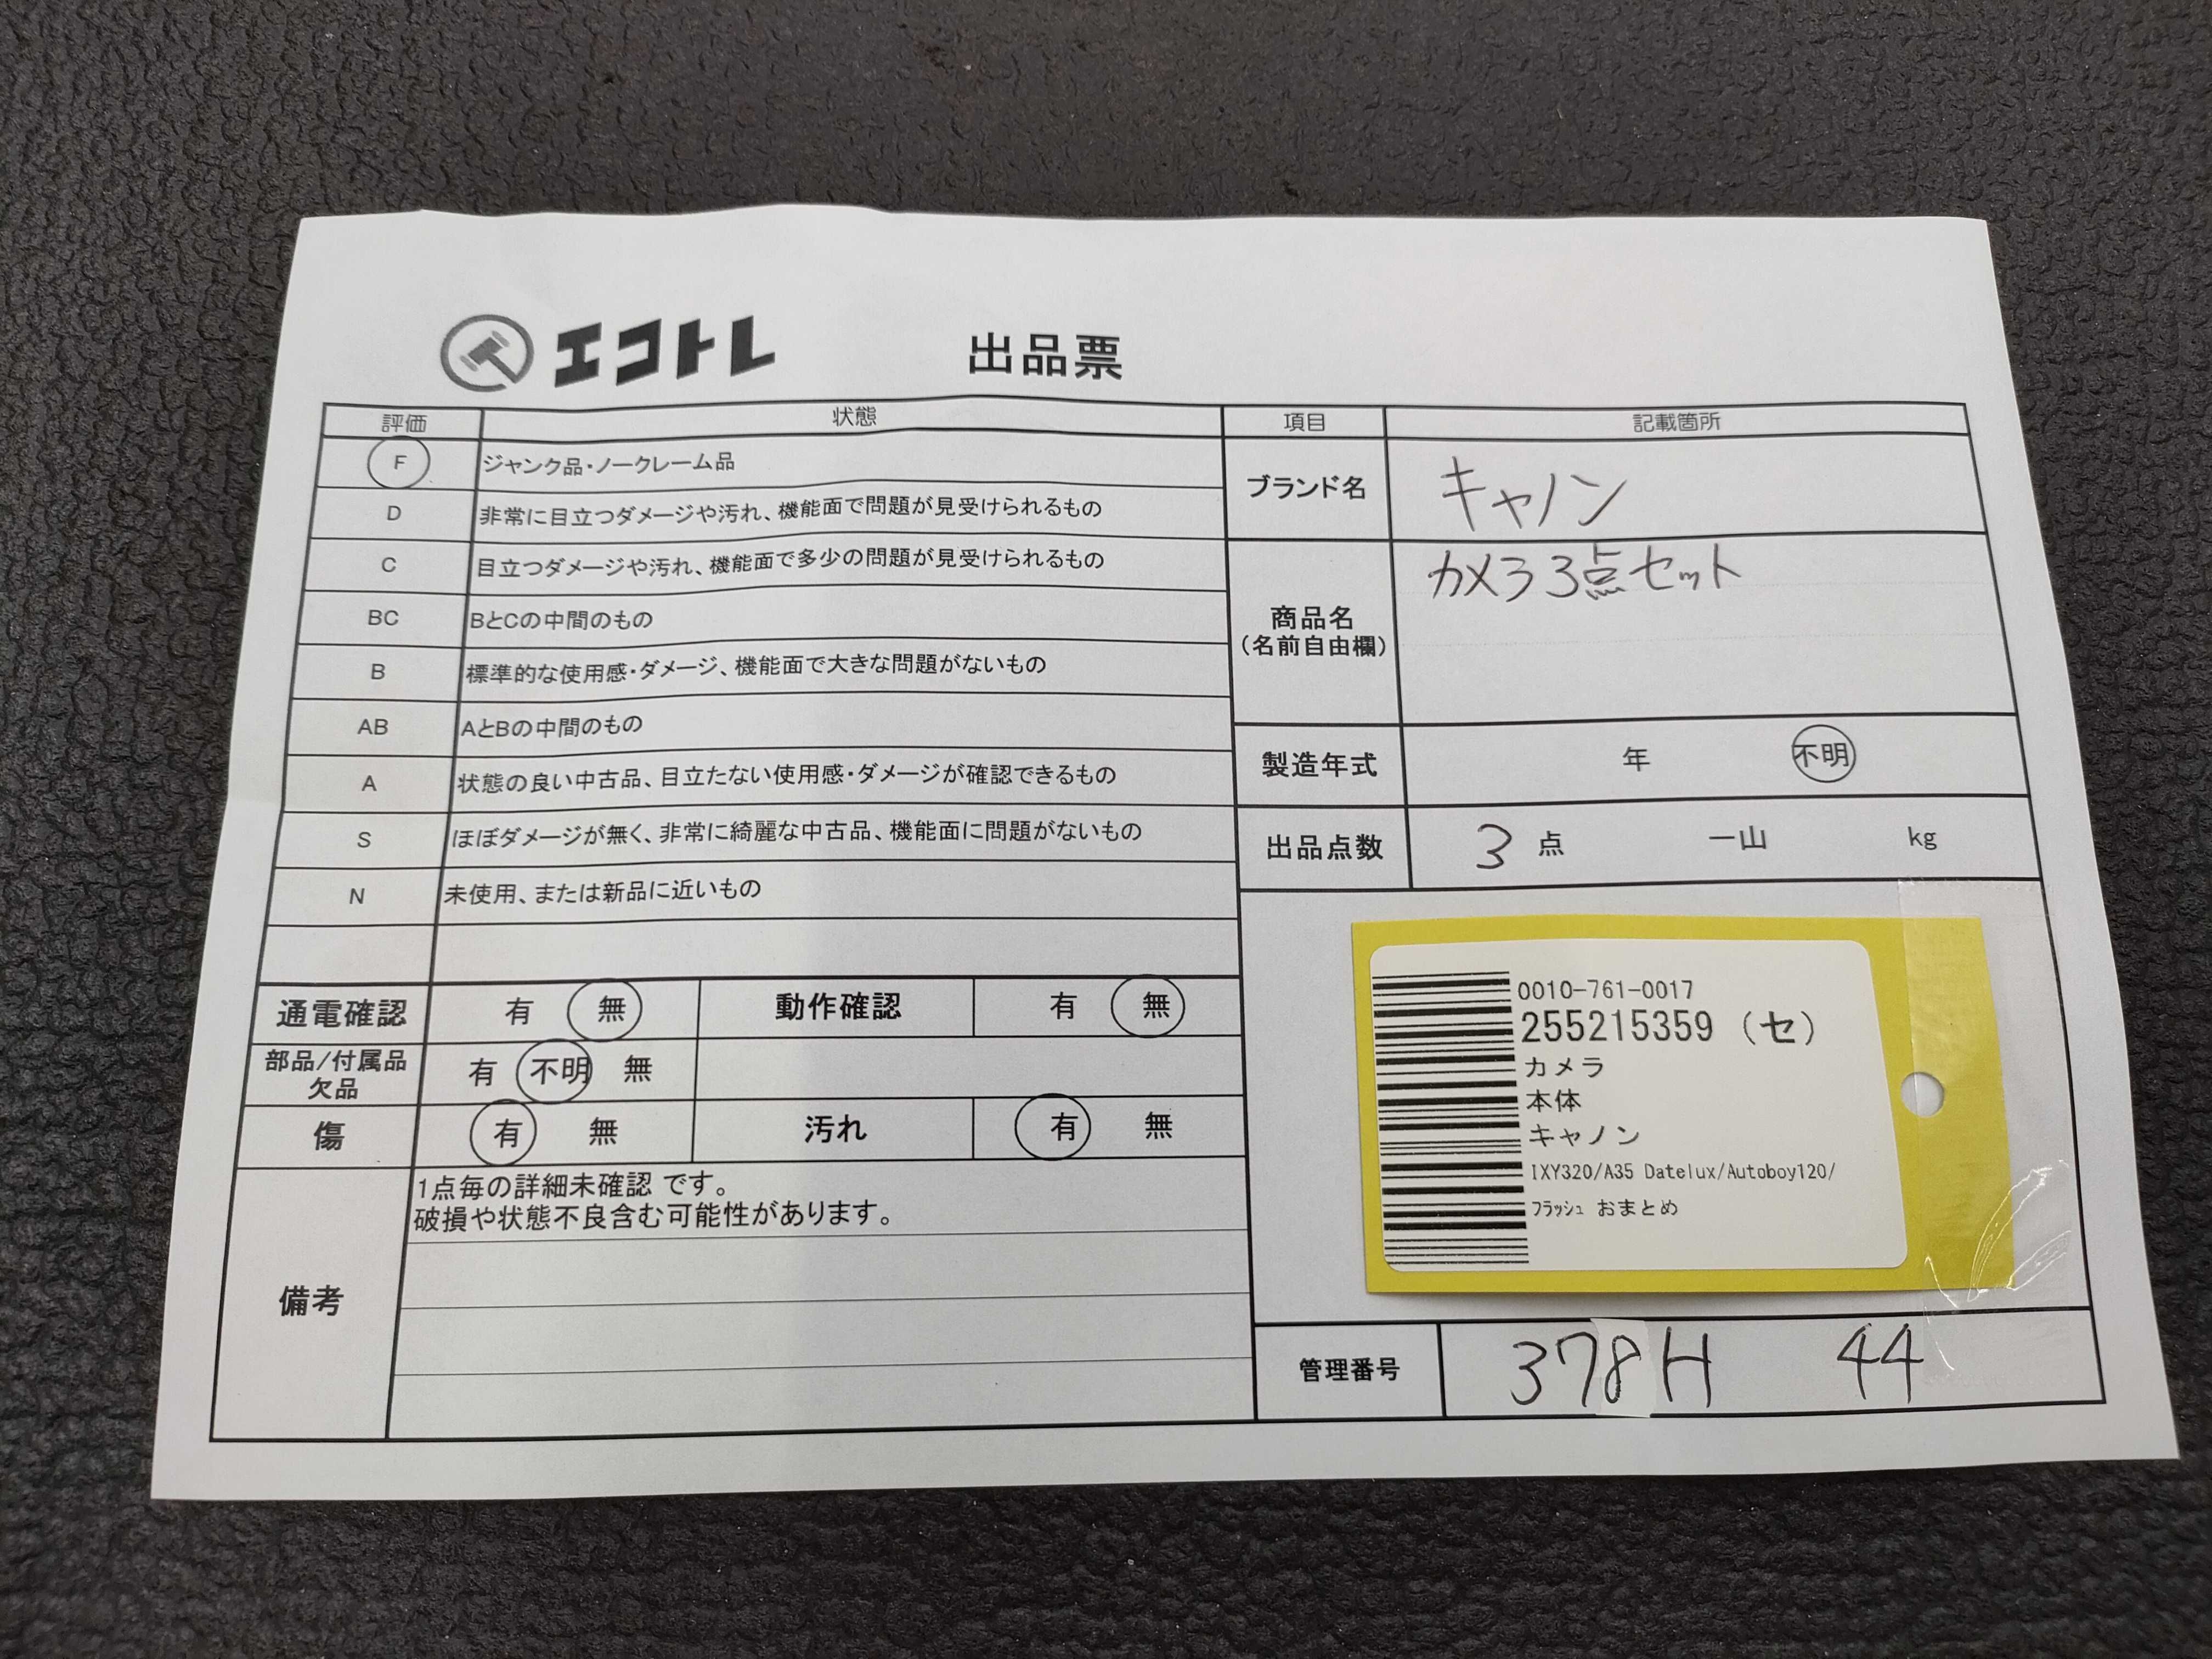 エコトレ 出品票
評価 状態
F ジャンク品・ノークレーム品
D 非常に目立つダメージや汚れ、機能面で問題が見受けられるもの
C 目立つダメージや汚れ、機能面で多少の問題が見受けられるもの
BC BとCの中間のもの
B 標準的な使用感・ダメージ、機能面で大きな問題がないもの
AB AとBの中間のもの
A 状態の良い中古品、目立たない使用感・ダメージが確認できるもの
S ほぼダメージが無く、非常に綺麗な中古品、機能面に問題がないもの
N 未使用、または新品に近いもの
通電確認 有 無 動作確認 有 無
部品/付属品
欠品 有 不明 無
傷 有 無 汚れ 有 無
備考
1点毎の詳細未確認 です。
破損や状態不良含む可能性があります。
項目 記載箇所
ブランド名 キャノン
商品名
(名前自由欄)
カメラ3点セット
製造年式 年 不明
出品点数 3 点 一山 kg
0010-761-0017
255215359 (セ)
カメラ
本体
キャノン
IXY320/A35 Datelux/Autoboy120/
フラッシュ おまとめ
管理番号 378H 44